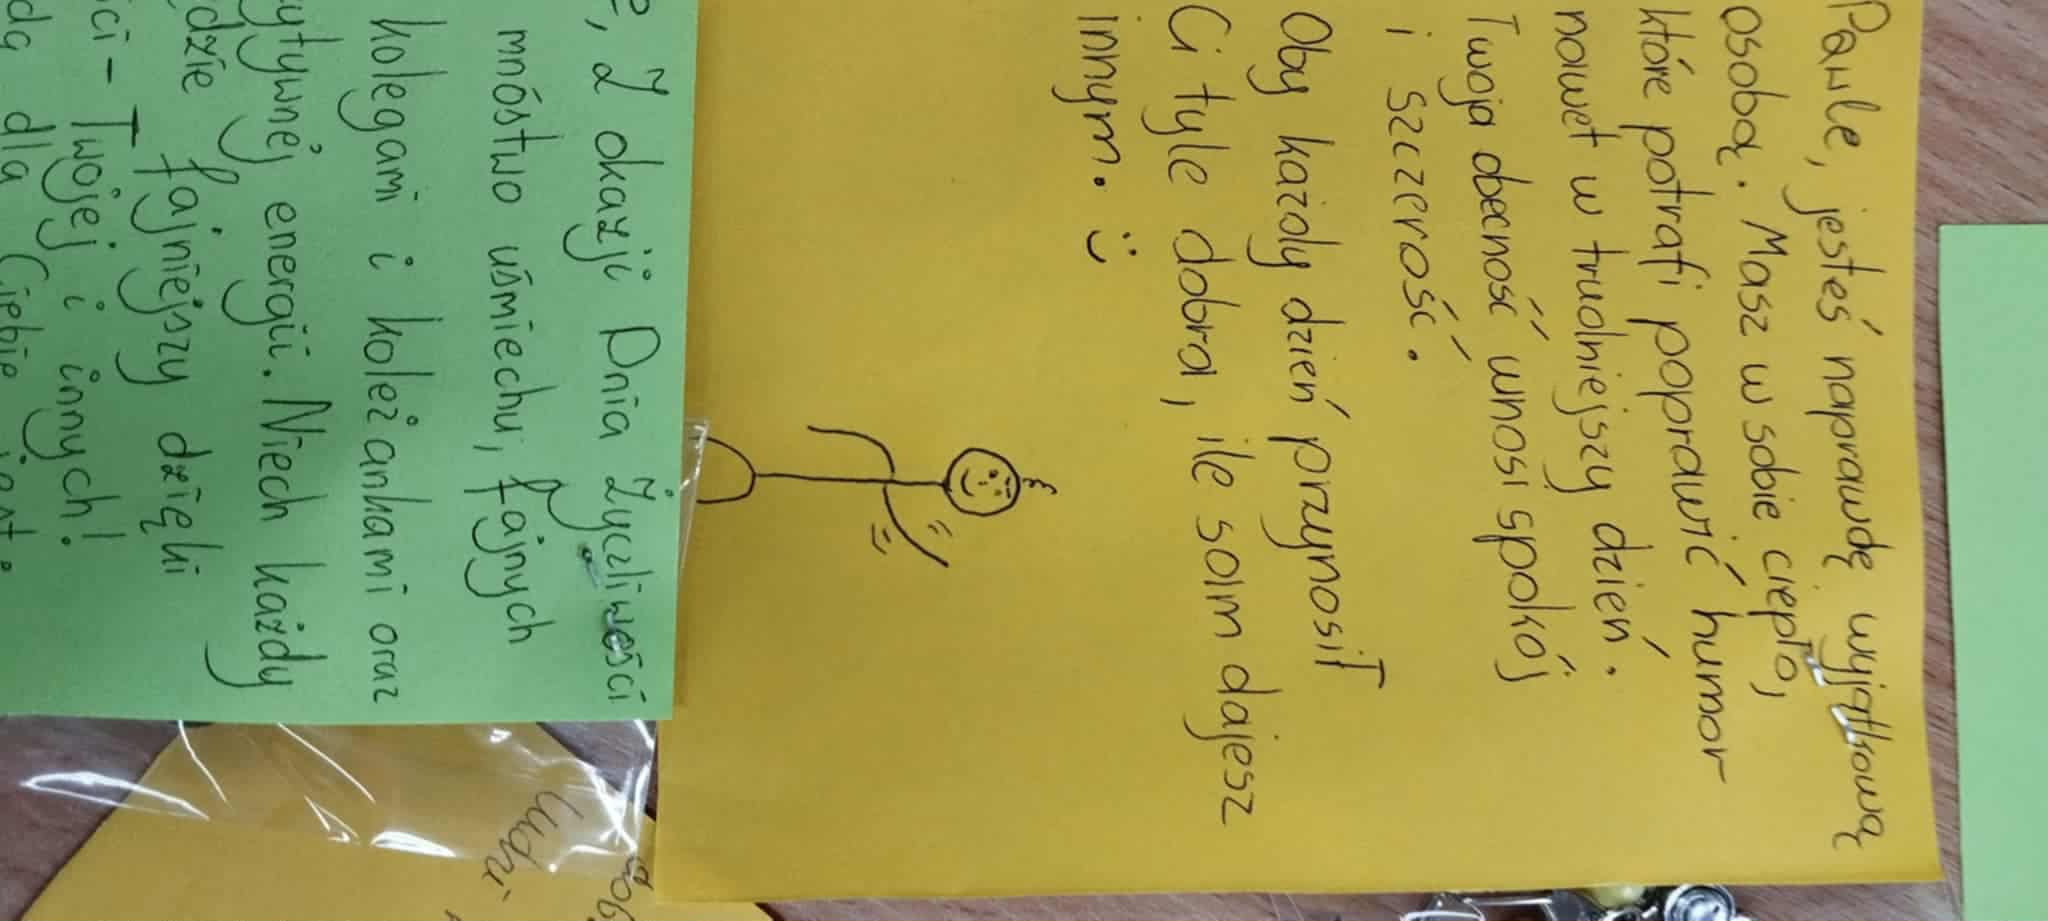 Pawle, jesteś naprawdę wyjątkową
osobą. Masz w sobie ciepło,
które potrafi poprawić humor
nawet w trudniejszy dzień.
Twoja obecność wnosi spokój
i szczerość.
Oby każdy dzień przynosił
Ci tyle dobra, ile sam dajesz
innym. :)
Z okazji Dnia Życzliwości
mnóstwo uśmiechu, fajnych
kolegami i koleżankami oraz
energii. Niech każdy
fajniejszy dzięki
Twojej i innych!
dla Ciebie
ludzi